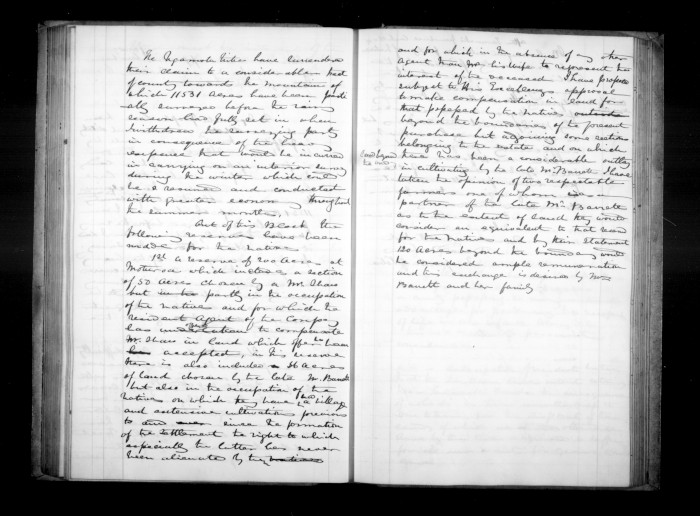 The Ngamotu Tribes have surrendered
their claim to a considerable tract
of country towards the mountains of
which 11531 acres have been parti-
ally surveyed before the rainy
season had fully set in when
I withdrew the surveying party
in consequence of the heavy
expense that would be incurred
in carrying on an interior survey
during the winter which could
be resumed and conducted
with greater economy throughout
the summer months.
Out of this Block the
following reserves have been
made for the natives
1st A reserve of 200 acres at
which includes a section
of 50 acres chosen by a Mr. Shaw
but partly in the occupation
of the natives and for which the
resident Agent of the Company
has to compensate
Mr. Shaw in land which offer has been
accepted, in this reserve
there is also included 36 acres
of land chosen by the late Mr. Barrett
but also in the occupation of the
natives on which they have a village
and extensive cultivation previous
to and since the formation
of the settlement the right to which
especially the latter has never
been alienated by the natives
and for which in the absence of any other
Agent than Mrs. his wife to represent the
interest of the deceased I have proposed
subject to His Excellency's approval
to make compensation in land for
that possessed by the natives outside
beyond the boundaries of the present
purchase but adjoining some sections
belonging to the estate and on which
land beyond
there has been a considerable outlay
in cultivating by the late Mr. Barrett I have
taken the opinion of two respectable
farmers one of whom was a
partner of the late Mr. Barrett
as to the extent of land they would
consider an equivalent to that reserved
for the natives and by their statement
120 acres beyond the boundary would
be considered ample remuneration
and this exchange is desired by Mrs.
Barrett and her family